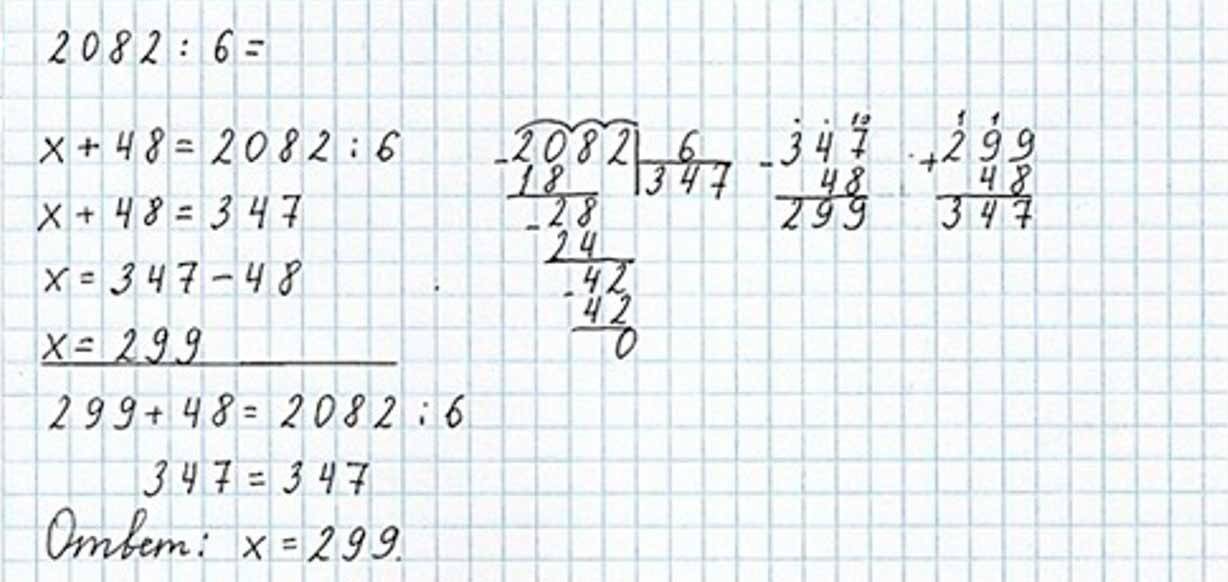 2082 : 6 =
x + 48 = 2082 : 6
x + 48 = 347
x = 347 - 48
x = 299
299 + 48 = 2082 : 6
347 = 347
Ответ: x = 299.
-2082 6
18 347
-28
24
-42
42
0
10
-347
48
299
1 1
+299
48
347